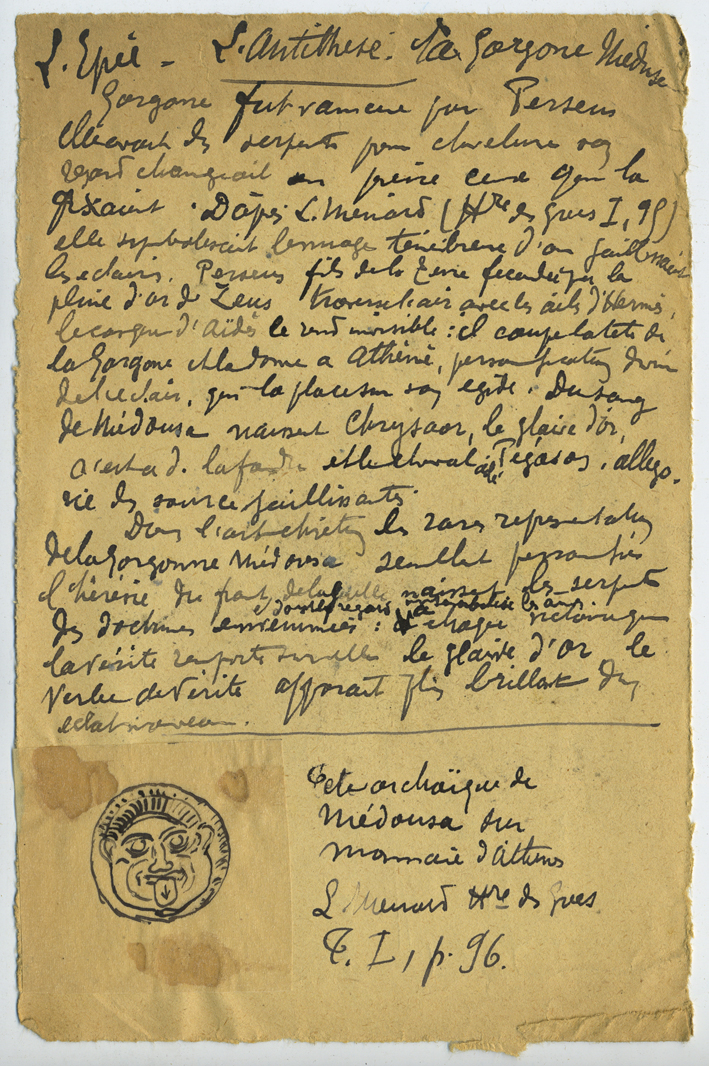 L. Epée - L. Antithèse. La Gorgone Méduse
Gorgone fut vaincue par Perseus
Elle avait des serpents pour chevelure son
regard changeait en pierre ceux qui la
fixaient. D'après L. Ménard (Hre des Grecs I, 95)
elle symbolisait le nuage ténébreux d'où jaillissaient
les éclairs. Perseus fils de la fécondée par la
pluie d'or de Zeus traverse l'air avec les ailes d'Hermès,
le casque d'Aïdès le rend invisible : il coupe la tête de
la Gorgone et la donne à Athéné, personnification divine
de l'éclair, qui la place sur son égide. Du sang
de Médousa naissent Chrysaor, le glaive d'or,
c'est à d. la foudre et le cheval ailé Pégasos, allégo-
rie des sources jaillissantes.
Dans l'art chrétien les rares représentations
de la Gorgonne Médousa semblent personnifier
l'hérésie du front de laquelle naissent les serpents
dont le regard
des doctrines envenimées : à chaque victoire que
la vérité remporte sur elle le glaive d'or le
Verbe de Vérité apparait plus brillant d'un
éclat nouveau.
Tête archaïque de
Médousa sur
monnaie d'Athènes
L Menard Hre des Grecs
T. I, p. 96.